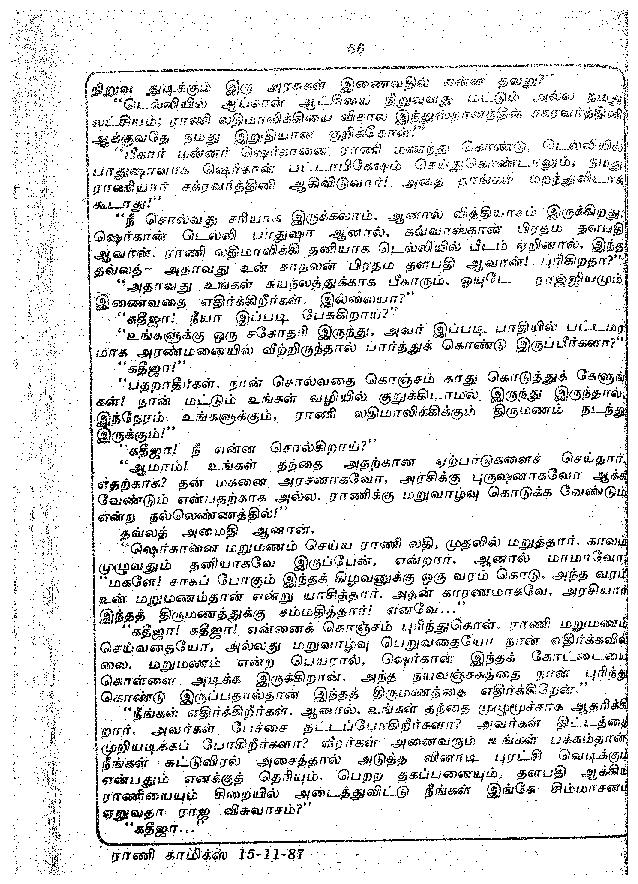 66
நிறுவ துடிக்கும் இரு அரசுகள் இணைவதில் என்ன தவறு?"
"டெல்லியில் ஆப்கான் ஆட்சியை நிறுவுவது மட்டும் அல்ல நமது
லட்சியம்; ராணி லதிமாலிக்கியை விசால இந்துஸ்தானத்தின் சக்ரவர்த்தினி
ஆக்குவதே நமது இறுதியான குறிக்கோள்!"
"பீகார் மன்னர் ஷெர்கானை, ராணி மணந்து கொண்டு, டெல்லியில்
பாதுஷாவாக ஷெர்கான் பட்டாபிஷேகம் செய்துகொண்டாலும், நமது
ராணியார் சக்ரவர்த்தினி ஆகிவிடுவார்! அதை தாங்கள் மறந்துவிடக்
கூடாது!"
"நீ சொல்வது சரியாக இருக்கலாம். ஆனால் வித்தியாசம் இருக்கிறது.
ஷெர்கான் டெல்லி பாதுஷா ஆனால், கவ்வாஸ்கான் பிரதம தளபதி
ஆவான். ராணி லதிமாலிக்கி தனியாக டெல்லியில் பீடம் ஏறினால், இந்த
தவ்லத்- அதாவது உன் காதலன் பிரதம தளபதி ஆவான்! புரிகிறதா?"
"அதாவது உங்கள் சுயநலத்துக்காக பீகாரும், ராஜ்ஜியமும்
இணைவதை எதிர்க்கிறீர்கள். இல்லையா?"
"கதீஜா! நீயா இப்படி பேசுகிறாய்?"
"உங்களுக்கு ஒரு சகோதரி இருந்து, அவர் இப்படி, பாதியில் பட்டமர
மாக அரண்மனையில் வீற்றிருந்தால் பார்த்துக் கொண்டு இருப்பீர்களா?"
"கதீஜா!"
"பதறாதீர்கள். நான் சொல்வதை கொஞ்சம் காது கொடுத்துக் கேளுங்
கள்! நான் மட்டும் உங்கள் வழியில் குறுக்கிடாமல் இருந்து இருந்தால்,
இந்நேரம் உங்களுக்கும், ராணி லதிமாலிக்கிக்கும் திருமணம் நடந்து
இருக்கும்!"
"கதீஜா! நீ என்ன சொல்கிறாய்?"
"ஆமாம்! உங்கள் தந்தை அதற்கான ஏற்பாடுகளைச் செய்தார்.
எதற்காக? தன் மகனை அரசனாகவோ, அரசிக்கு புருஷனாகவோ ஆக்க
வேண்டும் என்பதற்காக அல்ல. ராணிக்கு மறுவாழ்வு கொடுக்க வேண்டும்
என்ற நல்லெண்ணத்தில்!"
தவ்லத் அமைதி ஆனான்.
"ஷெர்கானை மறுமணம் செய்ய ராணி லதி, முதலில் மறுத்தார். காலம்
முழுவதும் தனியாகவே இருப்பேன், என்றார். ஆனால் மாமாவோ,
"மகளே! சாகப் போகும் இந்தக் கிழவனுக்கு ஒரு வரம் கொடு. அந்த வரம்
உன் மறுமணம்தான் என்று யாசித்தார். அதன் காரணமாகவே, அரசியார்
இந்தத் திருமணத்துக்கு சம்மதித்தார்! எனவே..."
"கதீஜா! கதீஜா! என்னைக் கொஞ்சம் புரிந்துகொள். ராணி மறுமணம்
செய்வதையோ, அல்லது மறுவாழ்வு பெறுவதையோ நான் எதிர்க்கவில்
லை. மறுமணம் என்ற பெயரால், ஷெர்கான் இந்தக் கோட்டையை
கொள்ளை அடிக்க இருக்கிறான். அந்த நயவஞ்சகத்தை நான் புரிந்து
கொண்டு இருப்பதால்தான் இந்தத் திருமணத்தை எதிர்க்கிறேன்."
"நீங்கள் எதிர்க்கிறீர்கள். ஆனால், உங்கள் தந்தை முழுமூச்சாக ஆதரிக்கி
றார். அவர்கள் பேச்சை தட்டப்போகிறீர்களா? அவர்கள் திட்டத்தை
முறியடிக்கப் போகிறீர்களா? வீரர்கள் அனைவரும் உங்கள் பக்கம்தான்.
நீங்கள் சுட்டுவிரல் அசைத்தால் அடுத்த வினாடி புரட்சி வெடிக்கும்
என்பதும் எனக்குத் தெரியும். பெற்ற தகப்பனையும், தளபதி ஆக்கிய
ராணியையும் சிறையில் அடைத்துவிட்டு நீங்கள் இங்கே சிம்மாசனம்
ஏறுவதா ராஜ விசுவாசம்?"
"கதீஜா..."
ராணி காமிக்ஸ் 15-11-87